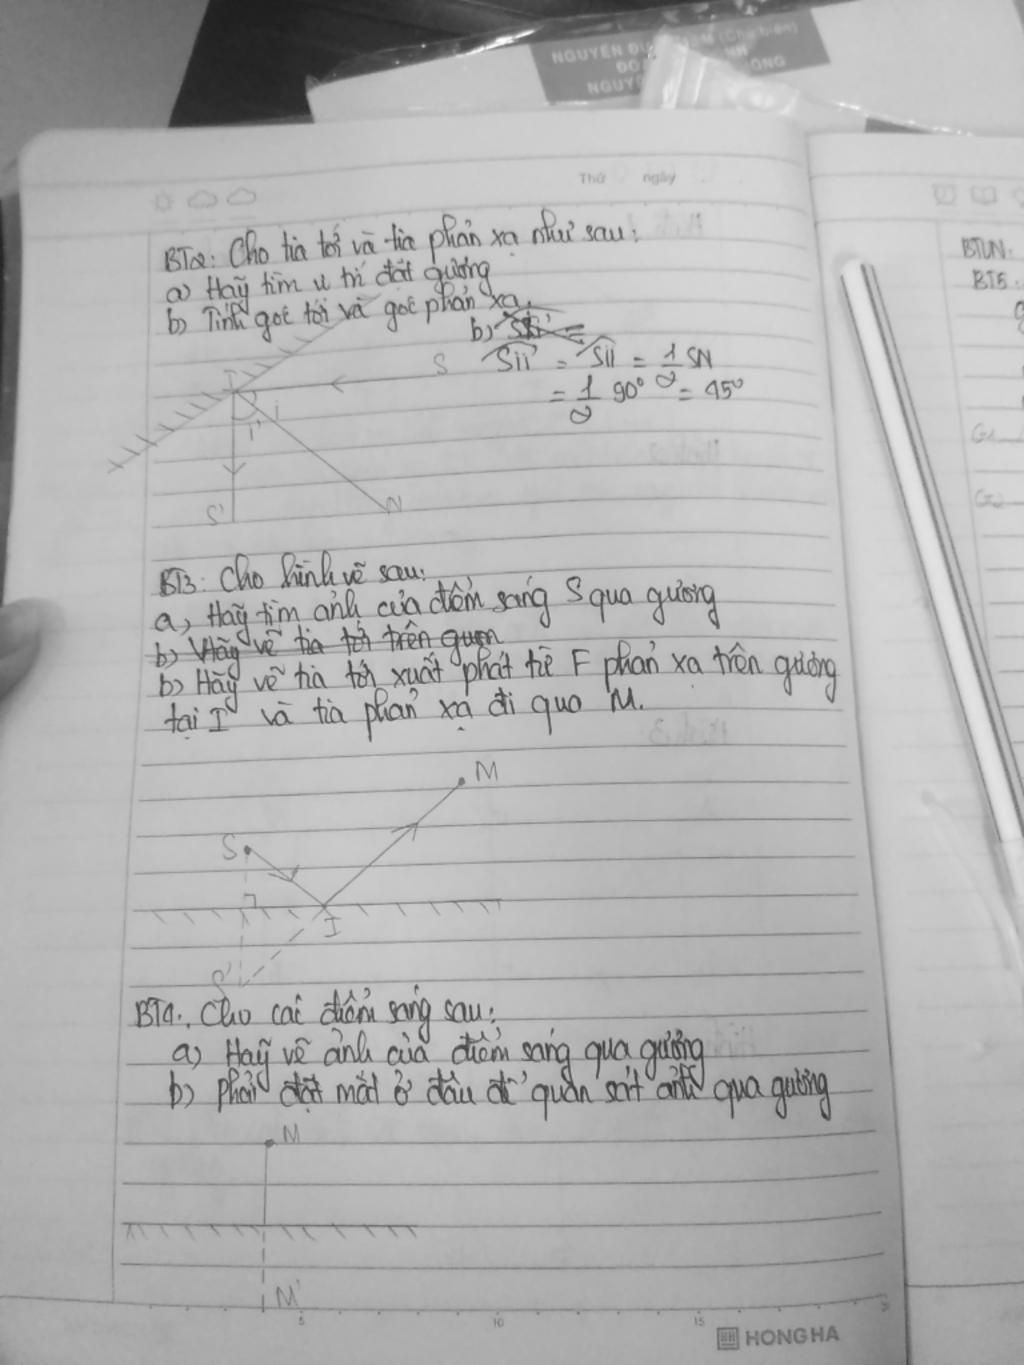 NGUYỄN
NGUY
Thứ ngày
BT2: Cho tia tới và tia phản xạ như sau:
a) Hãy tìm vị trí đặt gương
b) Tính góc tới và góc phản xạ.
b)
SII' = SII = 1/2 SN
= 1/2 90° = 45°
S
I
i
I'
S'
N
BT3: Cho hình vẽ sau:
a, Hãy tìm ảnh của điểm sáng S qua gương
b) Hãy vẽ tia tới trên gươn
b) Hãy vẽ tia tới xuất phát từ F phản xạ trên gương
tại I và tia phản xạ đi qua M.
M
S
I
S'
BT4: Cho các điểm sáng sau:
a) Hãy vẽ ảnh của điểm sáng qua gương
b) phải đặt mắt ở đâu để quan sát ảnh qua gương
M
M'
5 10 15
HONG HA
BTVN:
BT5:
G1
G2